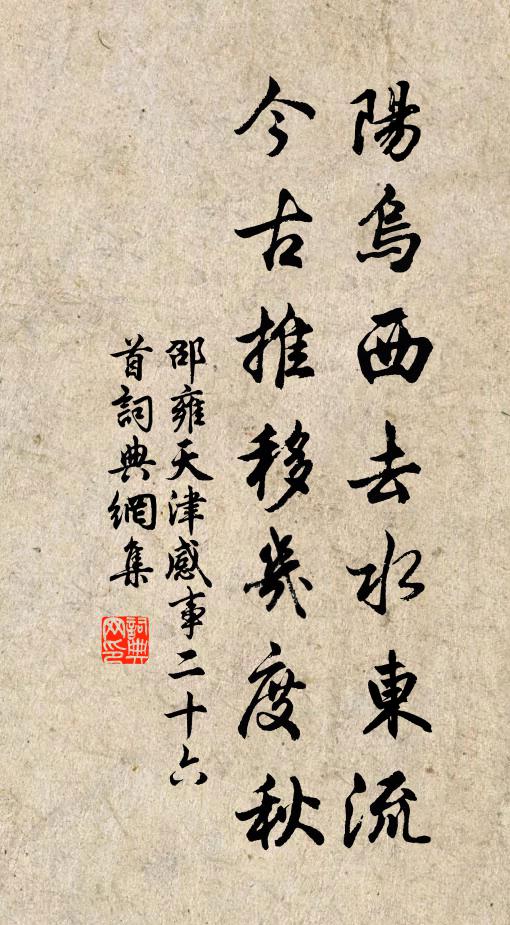 陽烏西去水東流
今古推移幾度秋
邵雍天津感事二十六
首詞典網集
詞典
网印